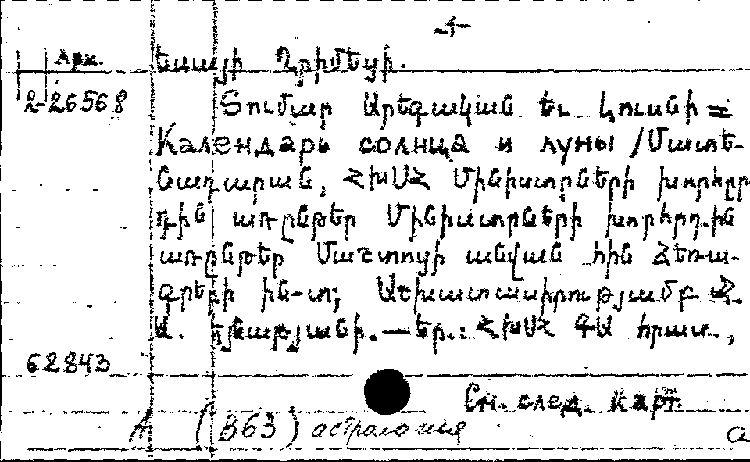 Арм. Եսայի Ղրիմեցի.
2-26568 Տոմար Արեգական եւ Լուսնի =
Календарь солнца и луны /Մատե-
նադարան, ՀԽՍՀ Մինիստրների խորհըր
դին առընթեր Մինիստրների խորհրդ.ին
առընթեր Մաշտոցի անվան հին Հեռա-
գրերի ին-տ; Աշխատասիրությամբ Հ.
Ա. – Եր.: ՀԽՍՀ ԳԱ հրատ.,
62843
См. след. карт.
А (В63) астрология а